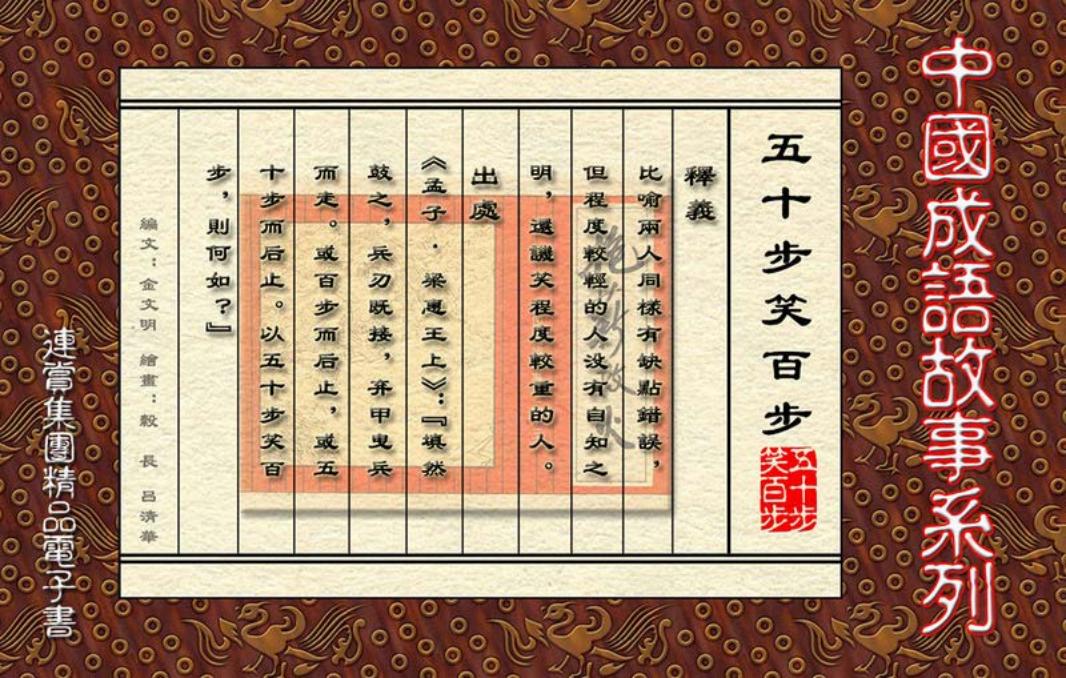 中國成語故事系列
五十步笑百步
五十步
笑百步
釋義
比喻兩人同樣有缺點錯誤，
但程度較輕的人没有自知之
明，還譏笑程度較重的人。
出處
《孟子·梁惠王上》：『填然
鼓之，兵刃既接，弃甲曳兵
而走。或百步而后止，或五
十步而后止。以五十步笑百
步，則何如？』
編文：金文明 繪畫：穀 長 吕清華
連賞集團精品電子書